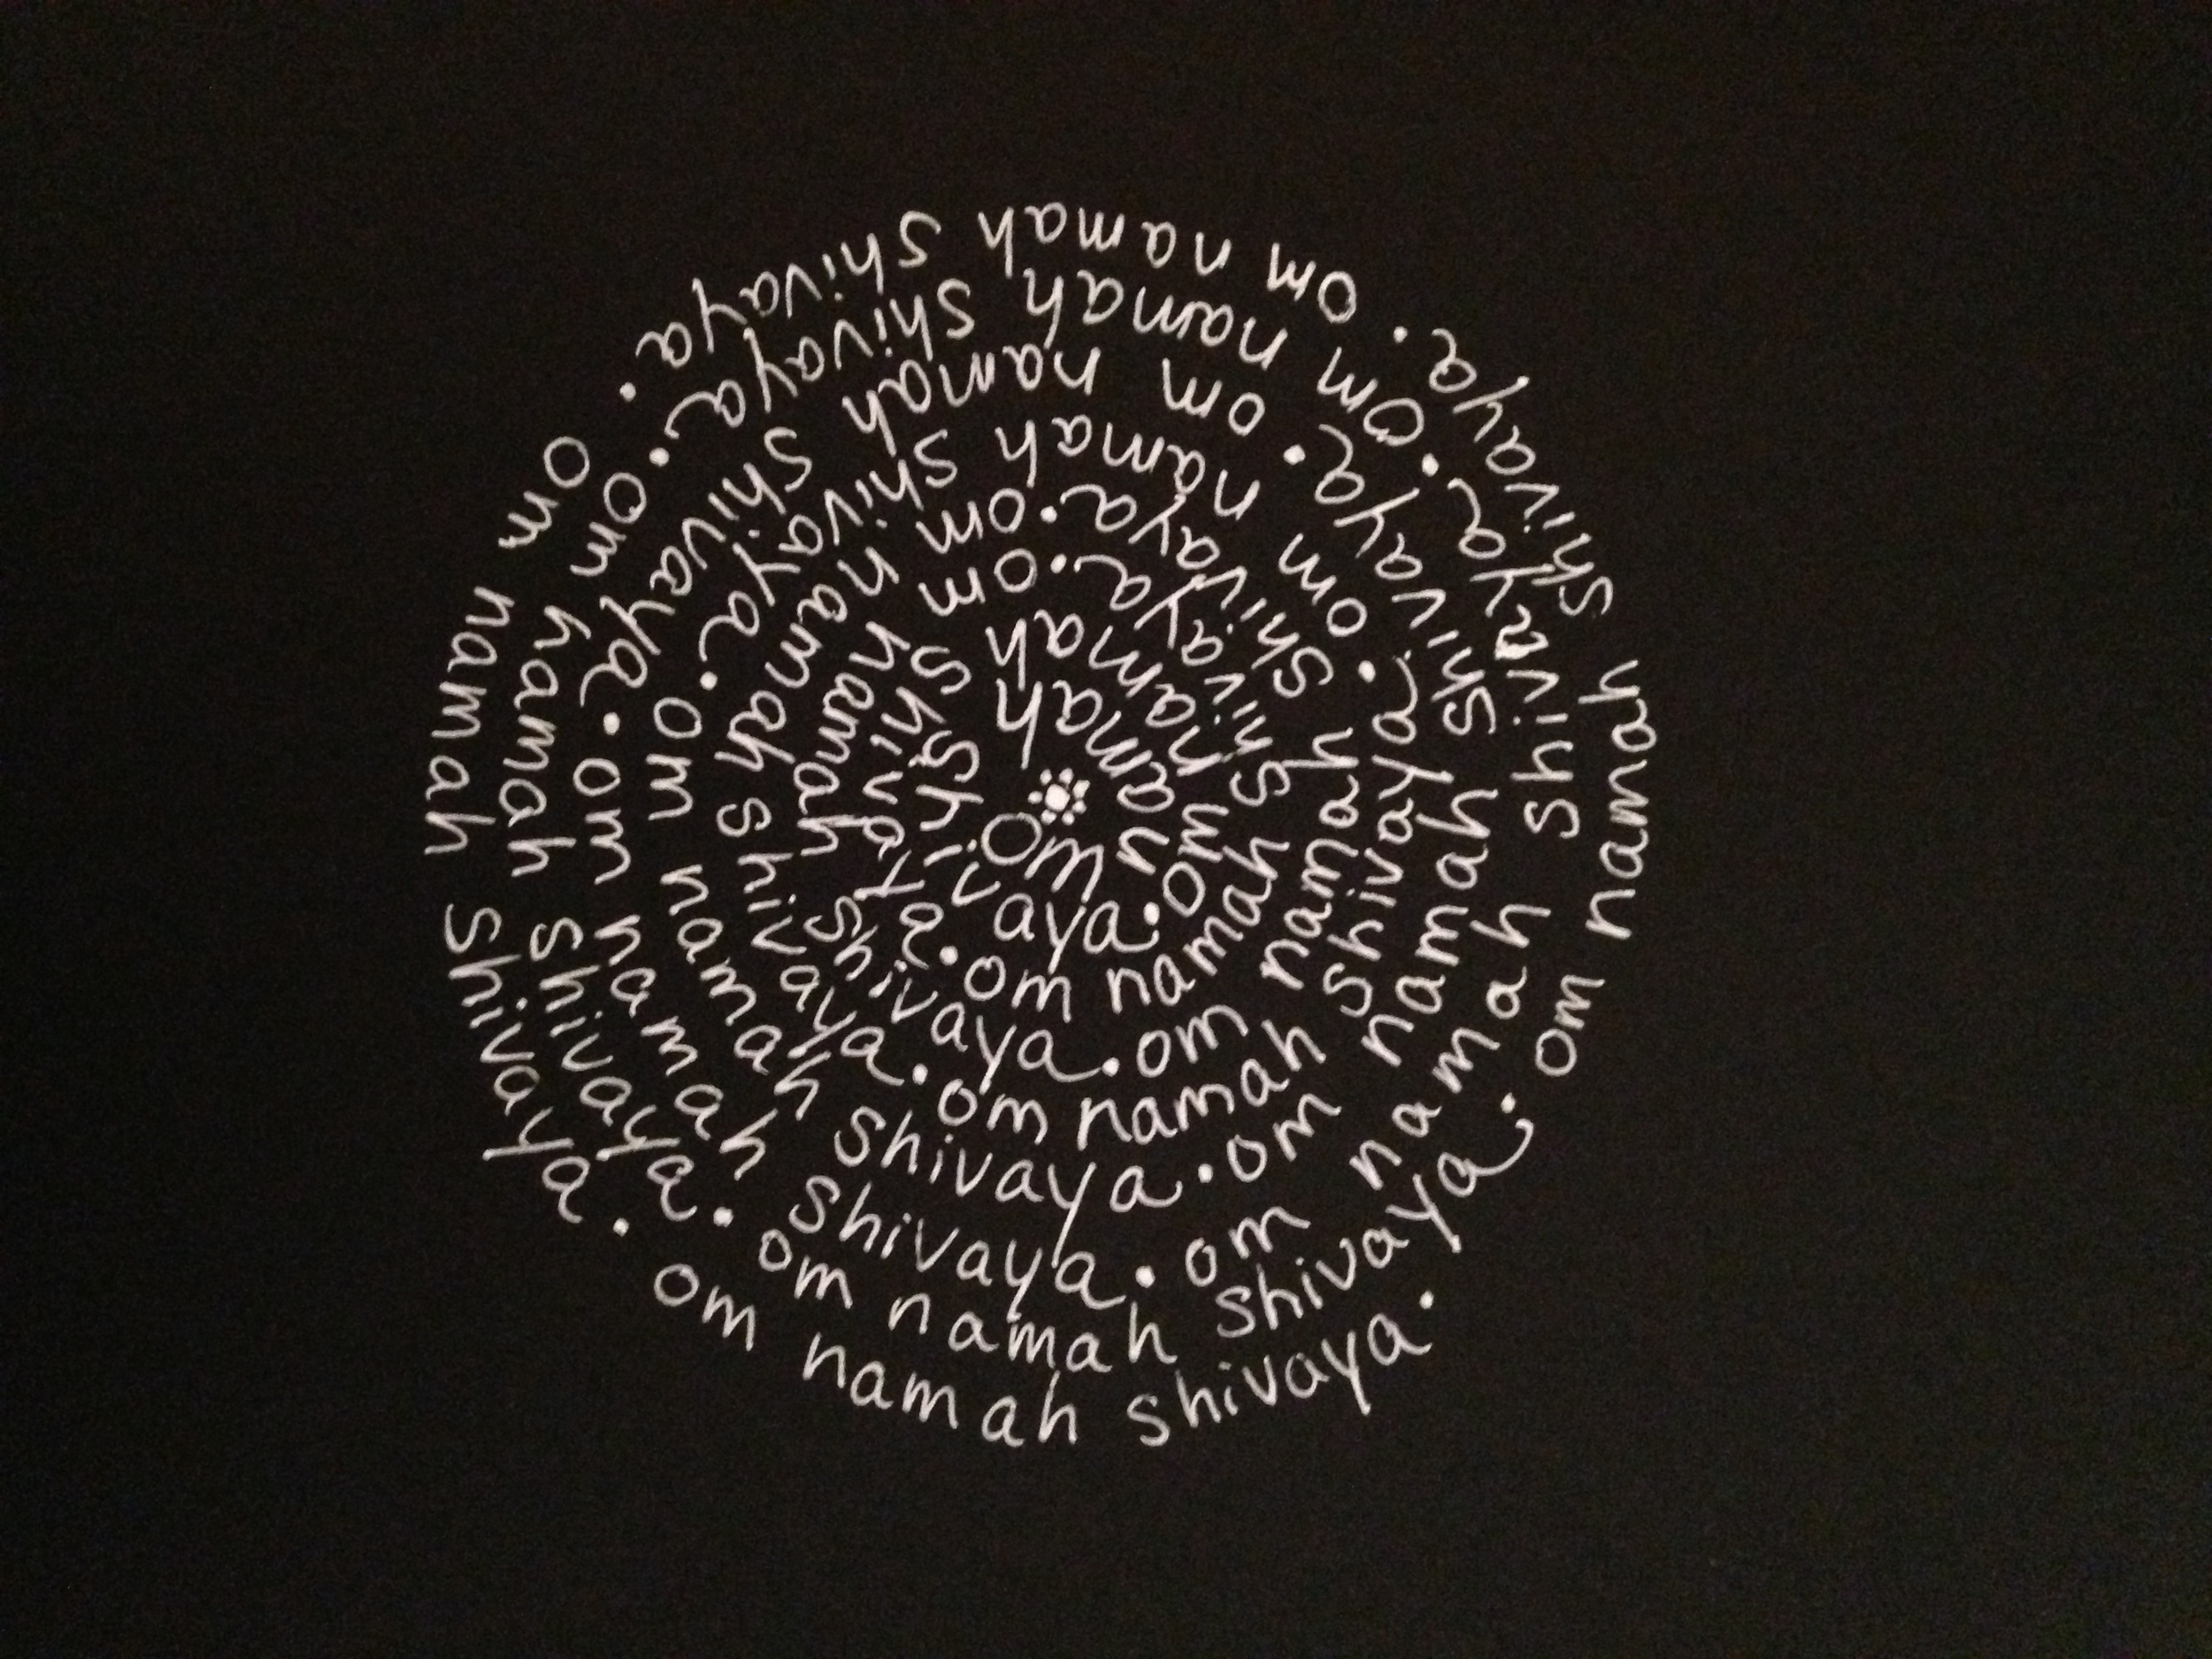 Om namah Shivaya. om namah shivaya. om namah shivaya. om namah shivaya. om namah shivaya. om namah shivaya. om namah shivaya. om namah shivaya. om namah shivaya. om namah shivaya. om namah shivaya. om namah shivaya. om namah shivaya. Om namah shivaya. om namah shivaya. om namah shivaya. om namah shivaya. om namah shivaya. om namah shivaya. om namah shivaya.